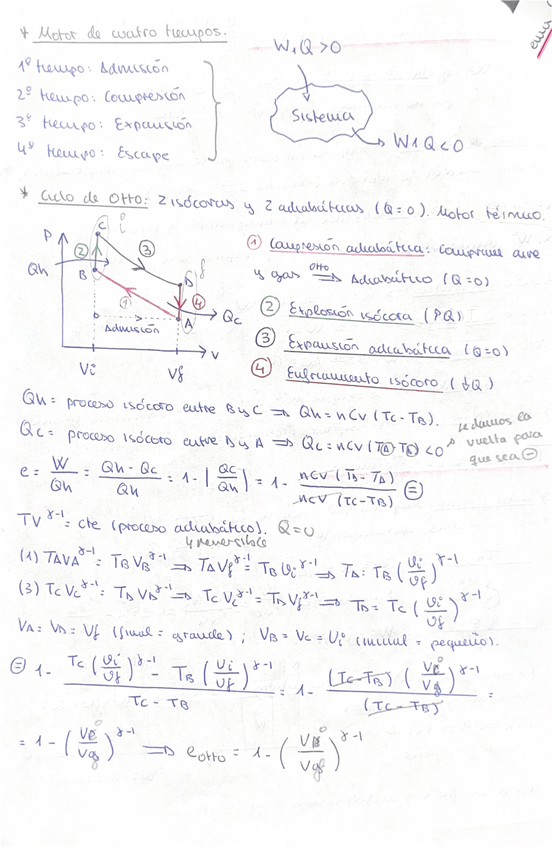 * Motor de cuatro tiempos.
1º tiempo: Admisión
2º tiempo: Compresión
3º tiempo: Expansión
4º tiempo: Escape
W, Q > 0
Sistema
W, Q < 0
* Ciclo de Otto: 2 isócoras y 2 adiabáticas (Q=0). Motor térmico.
P
C i
②
③
Qh
B
D f
①
④
Qc
A
Admisión
V
Vi
Vf
① Compresión adiabática: comprime aire
y gas ⟹ Otto Adiabático (Q=0)
② Explosión isócora (↑Q)
③ Expansión adiabática (Q=0)
④ Enfriamiento isócoro (↓Q)
Qh = proceso isócoro entre B y C ⟹ Qh = nCv (Tc - TB).
Qc = proceso isócoro entre D y A ⟹ Qc = nCv (TA - TD) < 0
le damos la
vuelta para
que sea ⊖
e = W/Qh = (Qh - Qc)/Qh = 1 - |Qc/Qh| = 1 - nCv (TD - TA)/nCv (Tc - TB) ⊜
TV^γ-1 = cte (proceso adiabático). Q=0
y reversible
(1) TAVA^γ-1 = TB VB^γ-1 ⟹ TA Vf^γ-1 = TB Vi^γ-1 ⟹ TA = TB (Vi/Vf)^γ-1
(3) Tc Vc^γ-1 = TD VD^γ-1 ⟹ Tc Vi^γ-1 = TD Vf^γ-1 ⟹ TD = Tc (Vi/Vf)^γ-1
VA = VD = Vf (final = grande) ; VB = Vc = Vi (inicial = pequeño).
⊜ 1 - (Tc (Vi/Vf)^γ-1 - TB (Vi/Vf)^γ-1)/(Tc - TB) = 1 - ((Tc - TB) (Vi/Vf)^γ-1)/(Tc - TB) =
= 1 - (Vi/Vf)^γ-1 ⟹ eotto = 1 - (Vi/Vf)^γ-1